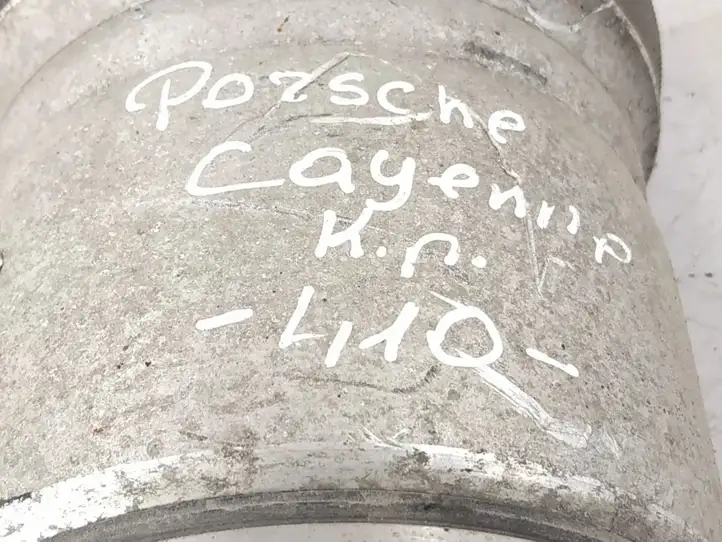 Porsche
Cayenne
К.п.
-410-